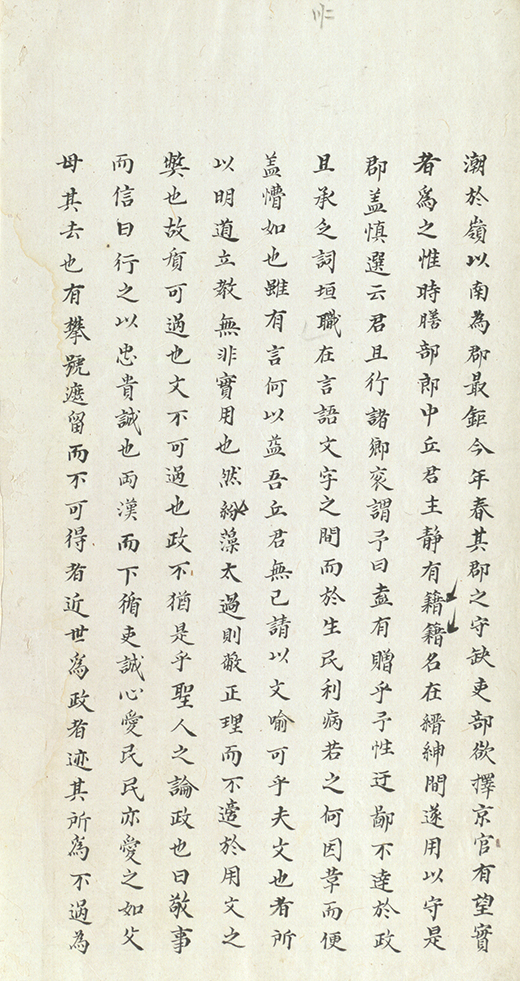 潮於嶺以南為郡最鉅今年春其郡之守缺吏部欲擇京官有望實
者為之惟時膳部郎中丘君主靜有籍籍名在縉紳間遂用以守是
郡盖慎選云君且行諸鄉衮謂予曰盍有贈乎予性迂鄙不達於政
且承乏詞垣職在言語文字之間而於生民利病若之何因革而便
盖懵如也雖有言何以益吾丘君無已請以文喻可乎夫文也者所
以明道立教無非實用也然紛藻太過則蔽正理而不適於用文之
獘也故質可過也文不可過也政不猶是乎聖人之論政也曰敬事
而信曰行之以忠貴誠也兩漢而下循吏誠心愛民民亦愛之如父
母其去也有攀號遮留而不可得者近世為政者迹其所為不過為